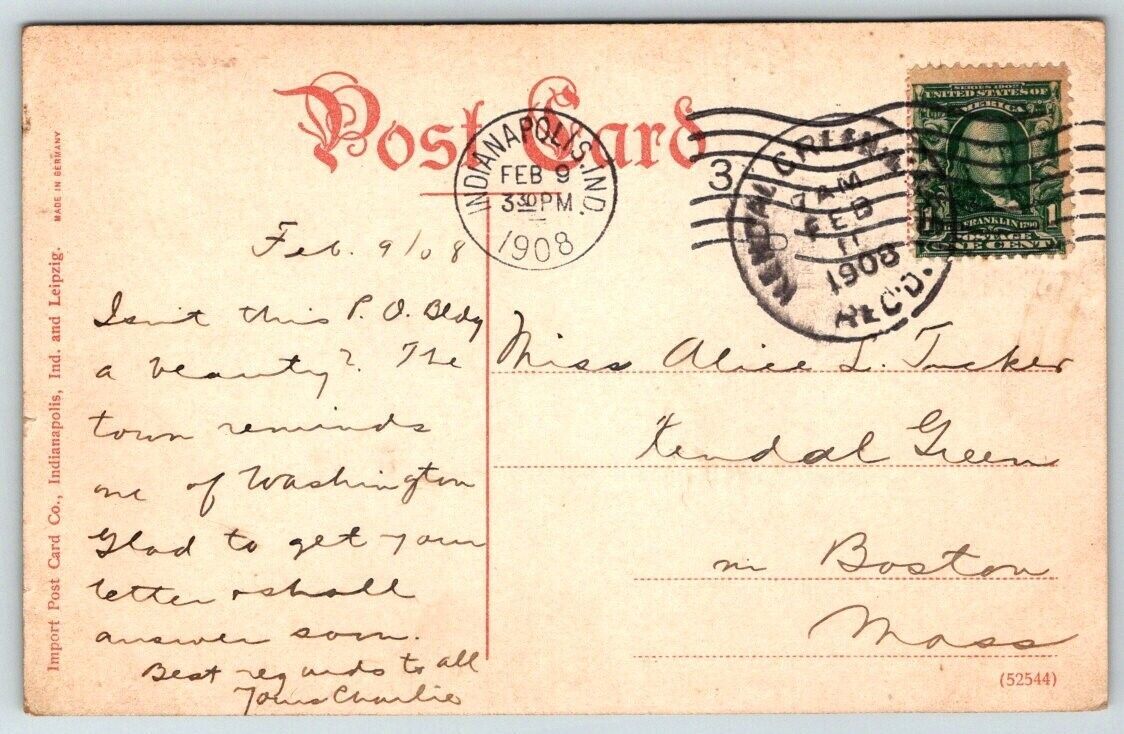 Post Card
INDIANAPOLIS, IND.
FEB 9
3 30 PM
1908
3
KENDAL GREEN
7 AM
FEB
11
1908
REC'D.
SERIES 1902
UNITED STATES OF
AMERICA
FRANKLIN 1790
POSTAGE
1 1
ONE CENT
Feb. 9/08
Isn't this P. O. Bldg
a beauty? The
town reminds
one of Washington
Glad to get your
letter & shall
answer soon.
Best regards to all
Yours Charlie
Miss Alice L. Tucker
Kendal Green
nr Boston
Mass
(52544)
Import Post Card Co., Indianapolis, Ind. and Leipzig. MADE IN GERMANY